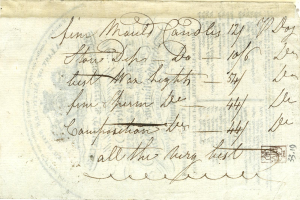 fine Mould Candles 12/ ⅌ Doz
Store Dips Do — 10/6 Do
best Wax Lights — 54/ Do
fine Sperm Do — 44/ Do
Composition Do — 44/ Do
all the very best